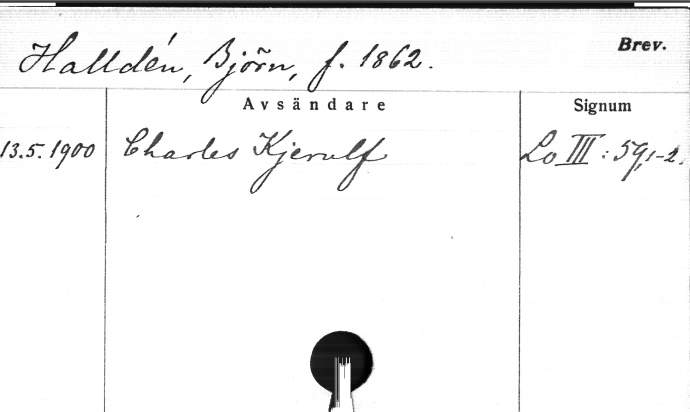 Halldén, Björn, f. 1862.
Brev.
Avsändare
Signum
13.5.1900 Charles Kjerulf Lo III: 59,1-2.